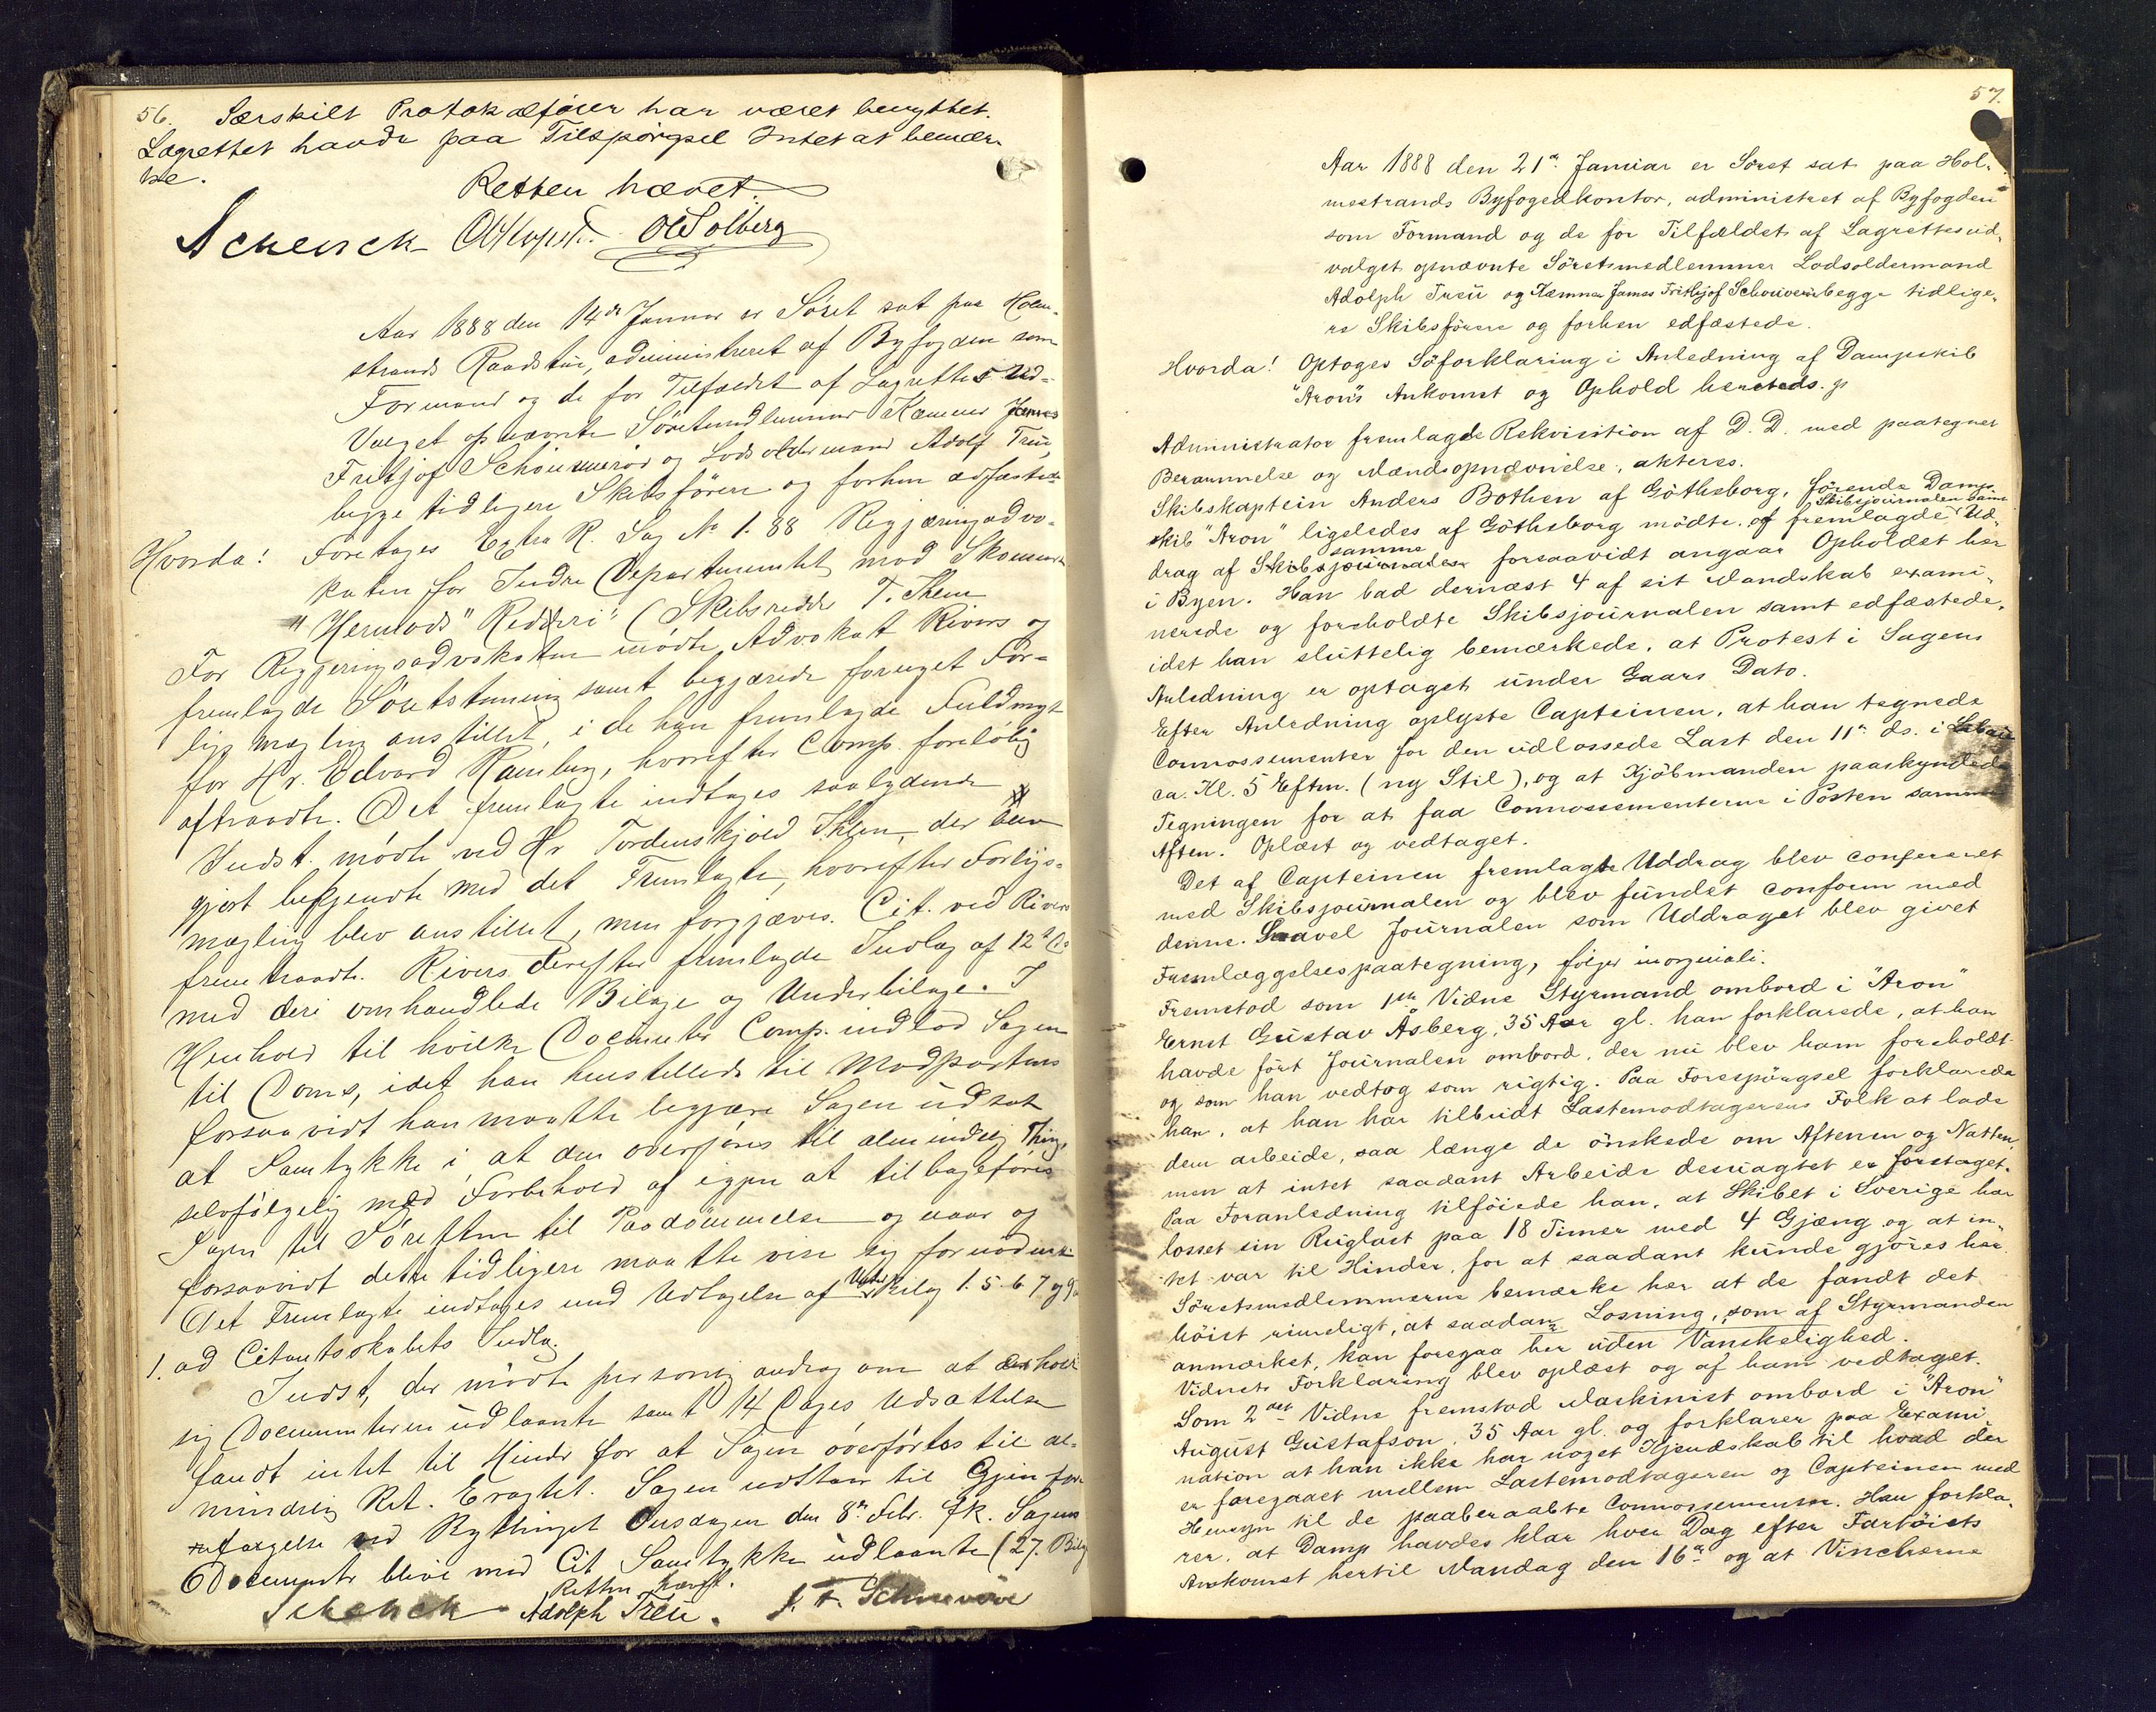 56. Særskilt Protokolfører har været benyttet.
Lagrettet havde paa Tilspørgsel Intet at bemær-
ke.
Retten hævet.
Schenck OlSolberg
Aar 1888 den 14de Januar er Søret sat paa Holm-
strands Raadstue, administreret af Byfogden som
Formand og de for Tilfældet af Lagrettes Ud-
valget opnævnte Søretsmedlemmer Kæmner James
Fritjof Schouwerør og Lodsoldermand Adolf Treu,
begge tidligere Skibsførere og forhen edfæstede
Hvorda! Foretoges Extra R. Sag No 1. 88 Regjeringsadvo-
katen for Indre Departementet mod Skonnert
"Hermods" Redderi (Skibsreder T. Them
For Regjeringsadvokaten mødte Advokat Rivers og
fremlagde Søretsstævning samt begjærede foreget For-
ligsmægling anstillet, i de han fremlagde Fuldmagt
for Hr. Edvard Ramberg, hvorefter Comp. foreløbig
aftraadte. Det fremlagte indtages saalydende
Indst. mødte ved Hr Tordenskjold Them, der blev
gjort bekjendt med det Fremlagte, hvorefter Forligs-
mægling blev anstillet, men forgjæves. Cit. ved Rivers
fremtraadte. Rivers derefter fremlagde Indlæg af 12t ds
med deri omhandlede Bilage og Underbilage. I
Henhold til hvilke Documenter Comp. indlod Sagen
til Doms, idet han henstillede til Modparten
forsaavidt han maatte begjære Sagen udsat
at Samtykke i at den overføres til almindelig Thing,
selvfølgelig med Forbehold af igjen at tilbageføres
Sagen til Søretten til Paadømmelse og naar og
forsaavidt dette tidligere maatte vise sig fornødent
Det Fremlagte indtages med Udtagelse af Underbilag 1. 5. 6 7 og 9
1. ad Citantskabets Indlæg.
Indst, der mødte personlig androg om at erholde
sig Documenterne udlaante samt 14 Dages Udsættelse
fandt intet til Hinder for at Sagen overførtes til al-
mindelig Ret. Eragtet. Sagen udstaar til Gjen for
retagelse ved Bythinget Onsdagen den 8de Febr. fk. Sagens
Documenter bleve med Cit Samtykke udlaante (27. Bilag
Retten hævet.
Schenck Adolph Treu. J. F. Schuewøre
57.
Aar 1888 den 21de Januar er Søret sat paa Hol-
mestrands Byfogedkontor, administret af Byfogden
som Formand og de for Tilfældet af Lagrettesud-
valget opnævnte Søretsmedlemmer Lodsoldermand
Adolph Treu og Kæmner James Frithjof Schouverin begge tidlige-
re Skibsførere og forhen edfæstede.
Hvorda! Optoges Søforklaring i Anledning af Dampskib
"Aron's Ankomst og Ophold hersteds.
Administrator fremlagde Rekvisition af D. D. med paategnet
Berammelse og Mandsopnævnelse, akteres.
Skibskaptein Anders Bothen af Göthsborg, førende Damp-
skib "Aron" ligeledes af Göthsborg mødte og fremlagde Skibsjournalen samt Ud-
drag af samme forsaavidt angaar Opholdet her
i Byen. Han bad dernæst 4 af sit Mandskab exami-
nerede og foreholdte Skibsjournalen samt edfæstede,
idet han sluttelig bemærkede, at Protest i Sagens
Anledning er optaget under Gaars Dato.
Efter Anledning oplyste Capteinen, at han tegnede
Connossementer for den udlossede Last den 11te ds. i
ca. Kl. 5 Eftm. (ny Stil), og at Kjøbmanden paaskyndede
Tegningen for at faa Connossementerne i Posten samme
Aften. Oplæst og vedtaget.
Det af Capteinen fremlagte Uddrag blev confereret
med Skibsjournalen og blev fundet conform med
denne. Saavel Journalen som Uddraget blev givet
Fremlæggelsespaategning, følger inoriginali.
Fremstod som 1ste Vidne Styrmand ombord i "Aron"
Ernst Gustav Åsberg, 35 Aar gl. han forklarede, at han
havde ført Journalen ombord, der nu blev ham foreholdt
og som han vedtog som rigtig. Paa Forespørgsel forklarede
han, at han har tilbudt Lastemodtagerens Folk at lade
dem arbeide, saa længe de ønskede om Aftenen og Natten,
men at intet saadant Arbeide desuagtet er foretaget.
Paa Foranledning tilføiede han, at Skibet i Sverige har
losset sin Ruglast paa 18 Timer med 4 Gjæng og at in-
tet var til Hinder, for at saadant kunde gjøres her
Søretsmedlemmerne bemærke her at de fandt det
høist rimeligt, at saadan Losning, som af Styrmanden
anmærket, kan foregaa her uden Vanskelighed.
Vidnets Forklaring blev oplæst og af ham vedtaget.
Som 2det Vidne fremstod Maskinist ombord i "Aron"
August Gustafson, 35 Aar gl. og forklarer paa Exami-
nation at han ikke har noget Kjendskab til hvad der
er foregaaet mellem Lastemodtageren og Capteinen med
Hensyn til de paaberaabte Connossementer. Han forkla-
rer, at Damp havdes klar hver Dag efter Fartøiets
Ankomst hertil Mandag den 16de og at Vincherne